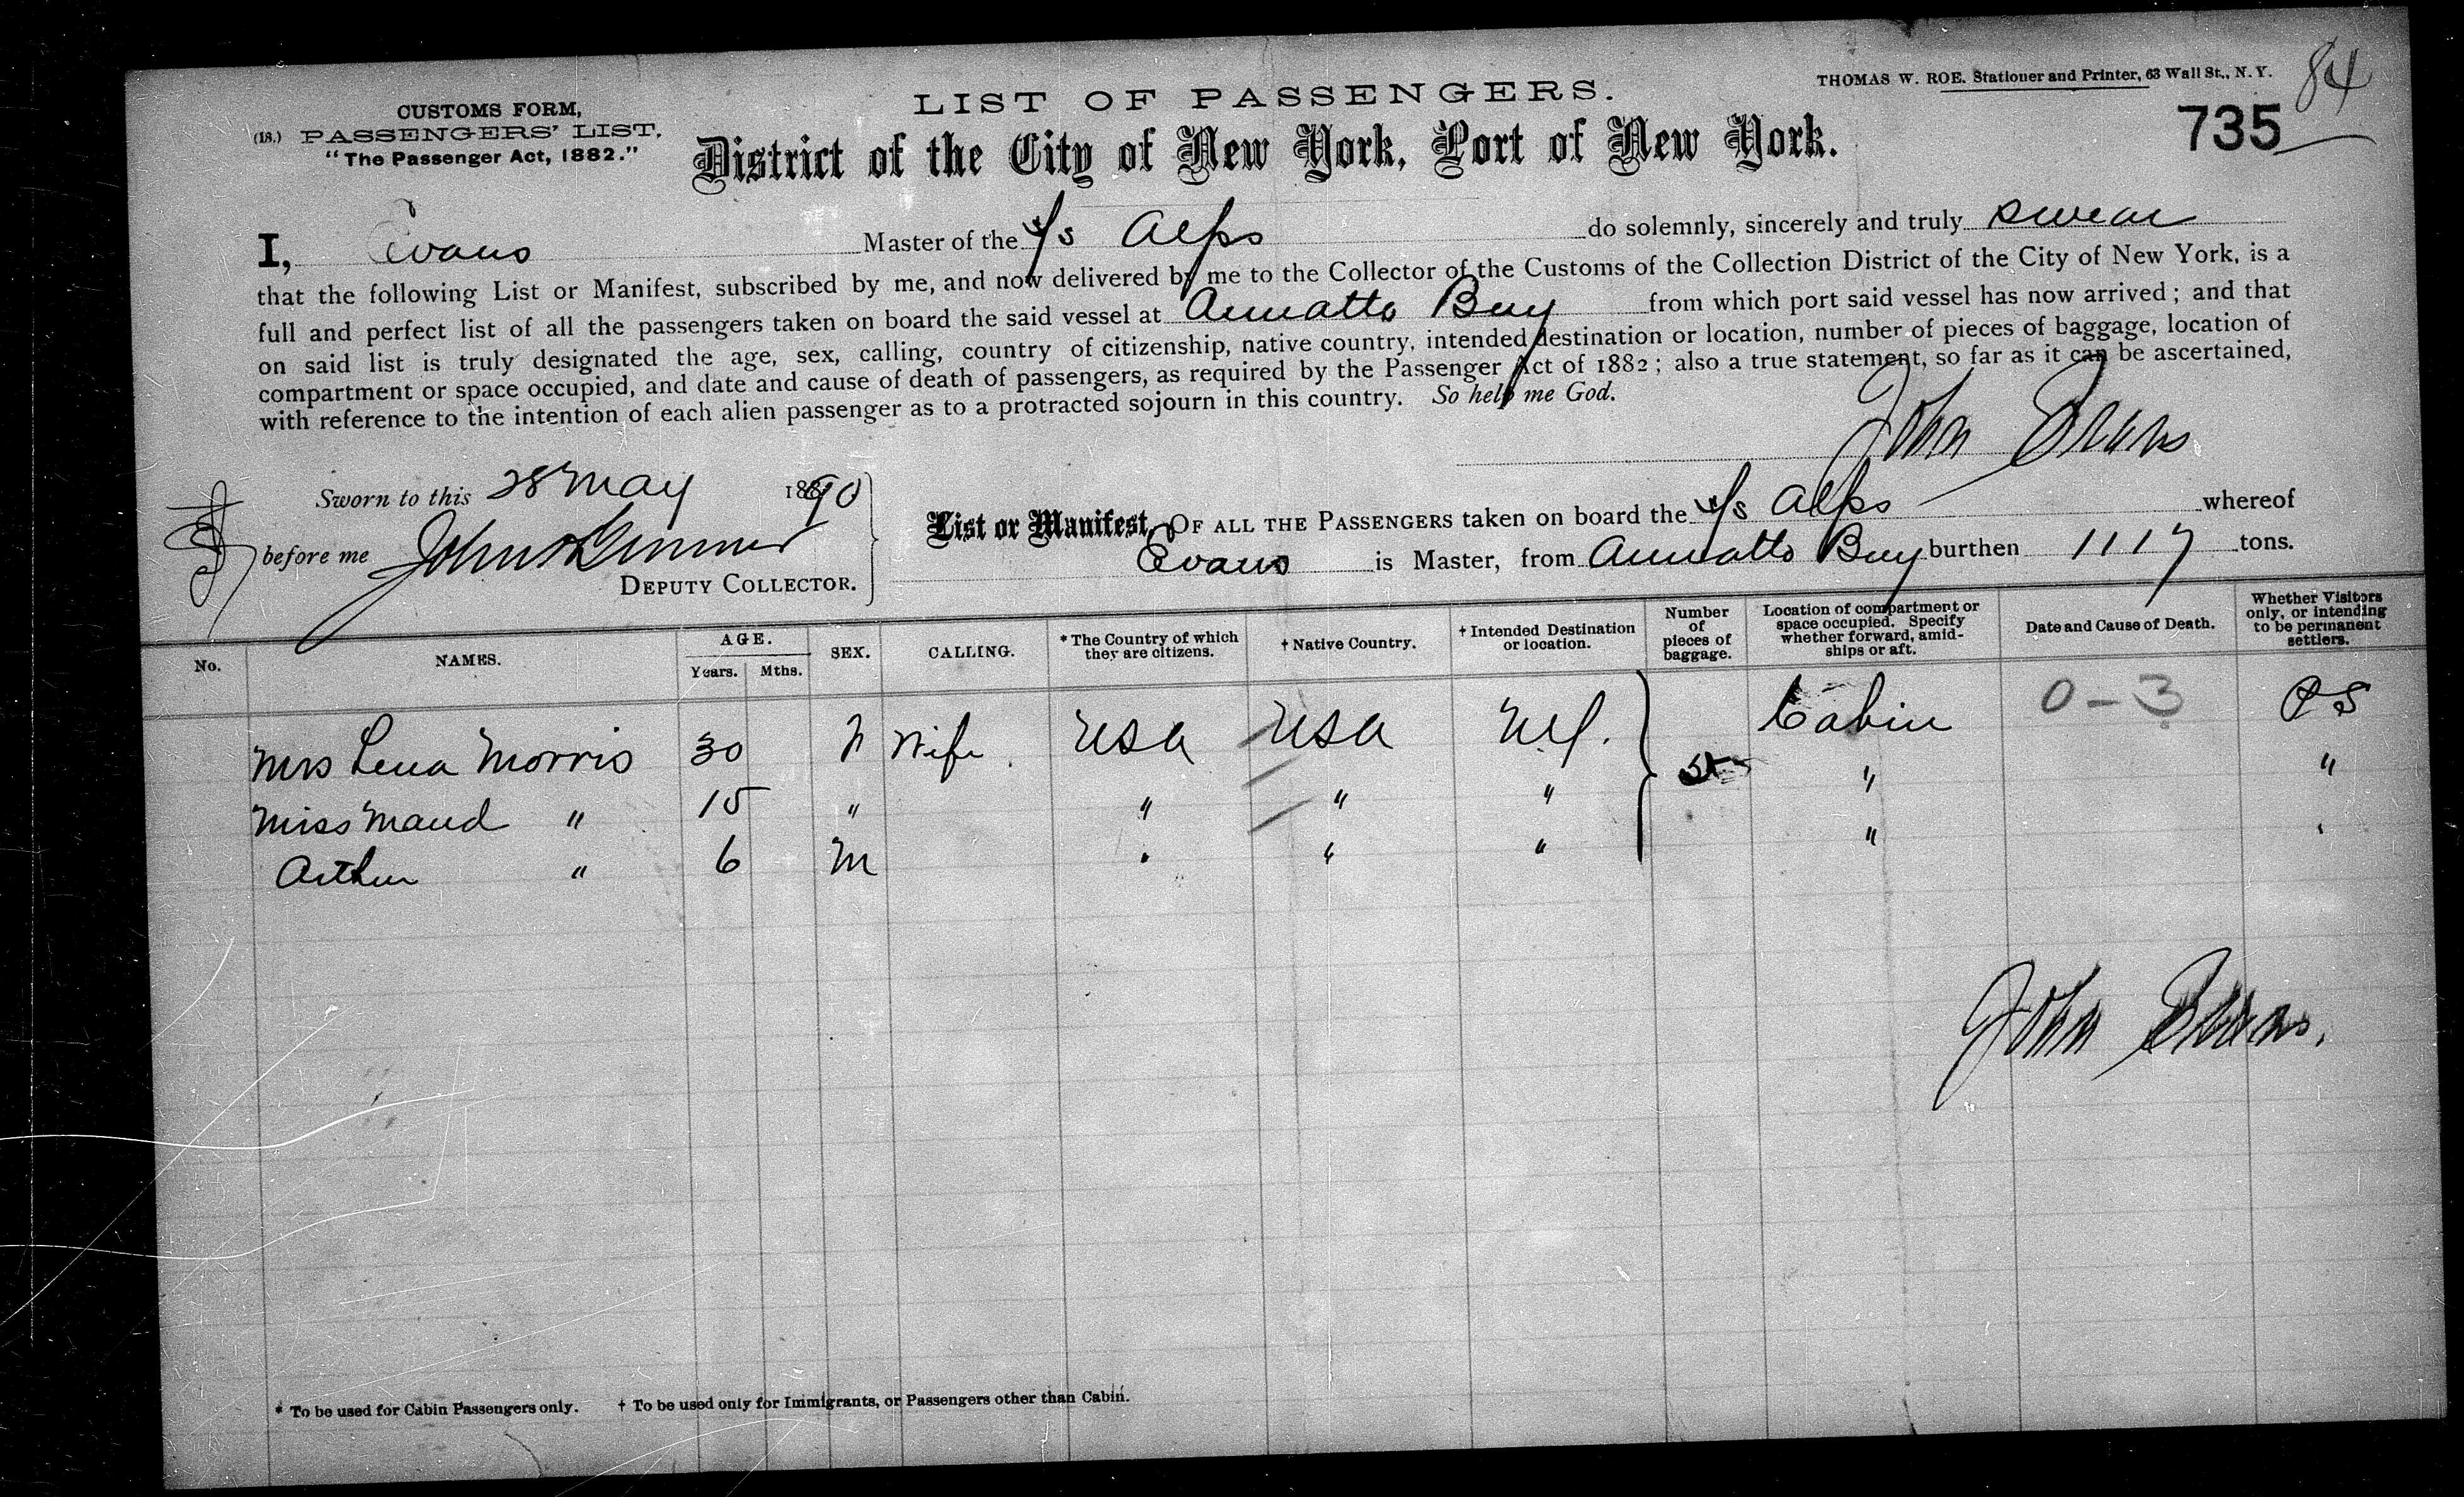 THOMAS W. ROE. Stationer and Printer, 63 Wall St., N.Y.
84
735
CUSTOMS FORM,
(18.) PASSENGERS' LIST,
"The Passenger Act, 1882."
LIST OF PASSENGERS.
District of the City of New York, Port of New York.
I, Evans Master of the s/s Alps do solemnly, sincerely and truly swear
that the following List or Manifest, subscribed by me, and now delivered by me to the Collector of the Customs of the Collection District of the City of New York, is a
full and perfect list of all the passengers taken on board the said vessel at Annatto Bay from which port said vessel has now arrived; and that
on said list is truly designated the age, sex, calling, country of citizenship, native country, intended destination or location, number of pieces of baggage, location of
compartment or space occupied, and date and cause of death of passengers, as required by the Passenger Act of 1882; also a true statement, so far as it can be ascertained,
with reference to the intention of each alien passenger as to a protracted sojourn in this country. So help me God.
John Evans
Sworn to this 28 May 1890
before me John
DEPUTY COLLECTOR.
List or Manifest, OF ALL THE PASSENGERS taken on board the s/s Alps whereof
Evans is Master, from Annatto Bay burthen 1117 tons.
No. NAMES. AGE. Years. Mths. SEX. CALLING. * The Country of which they are citizens. † Native Country. † Intended Destination or location. Number of pieces of baggage. Location of compartment or space occupied. Specify whether forward, amidships or aft. Date and Cause of Death. Whether Visitors only, or intending to be permanent settlers.
Mrs Lena Morris 30 Wife USA USA Cabin 0-3 PS
Miss Maud " 15 " " " " " "
Arthur " 6 M " " " "
John Evans.
* To be used for Cabin Passengers only. † To be used only for Immigrants, or Passengers other than Cabin.